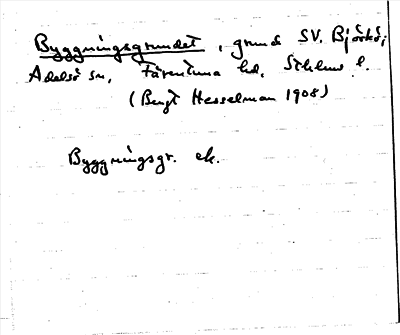 Byggningsgrundet, grund SV. Björkö,
Adelsö sn, Färentuna hd, Sthlms l.
(Bengt Hesselman 1908)
Byggningsgr. ek.